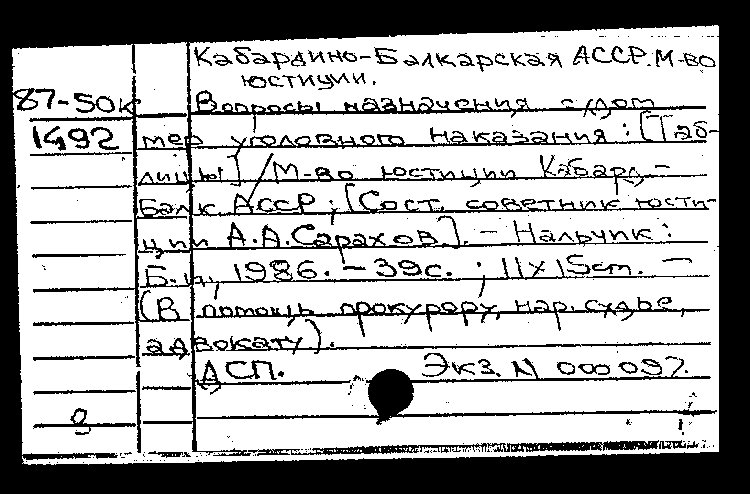 Кабардино-Балкарская АССР. М-во
юстиции.
87-50к Вопросы назначения судом
1492 мер уголовного наказания: [Таб-
лицы] / М-во юстиции Кабард.-
Балк. АССР; [Сост. советник юсти-
ции А.А.Сарахов]. - Нальчик:
Б.и., 1986. - 39с. ; 11х15см. -
(В помощь прокурору, нар. судье,
адвокату).
ДСП. Экз. N 000097.